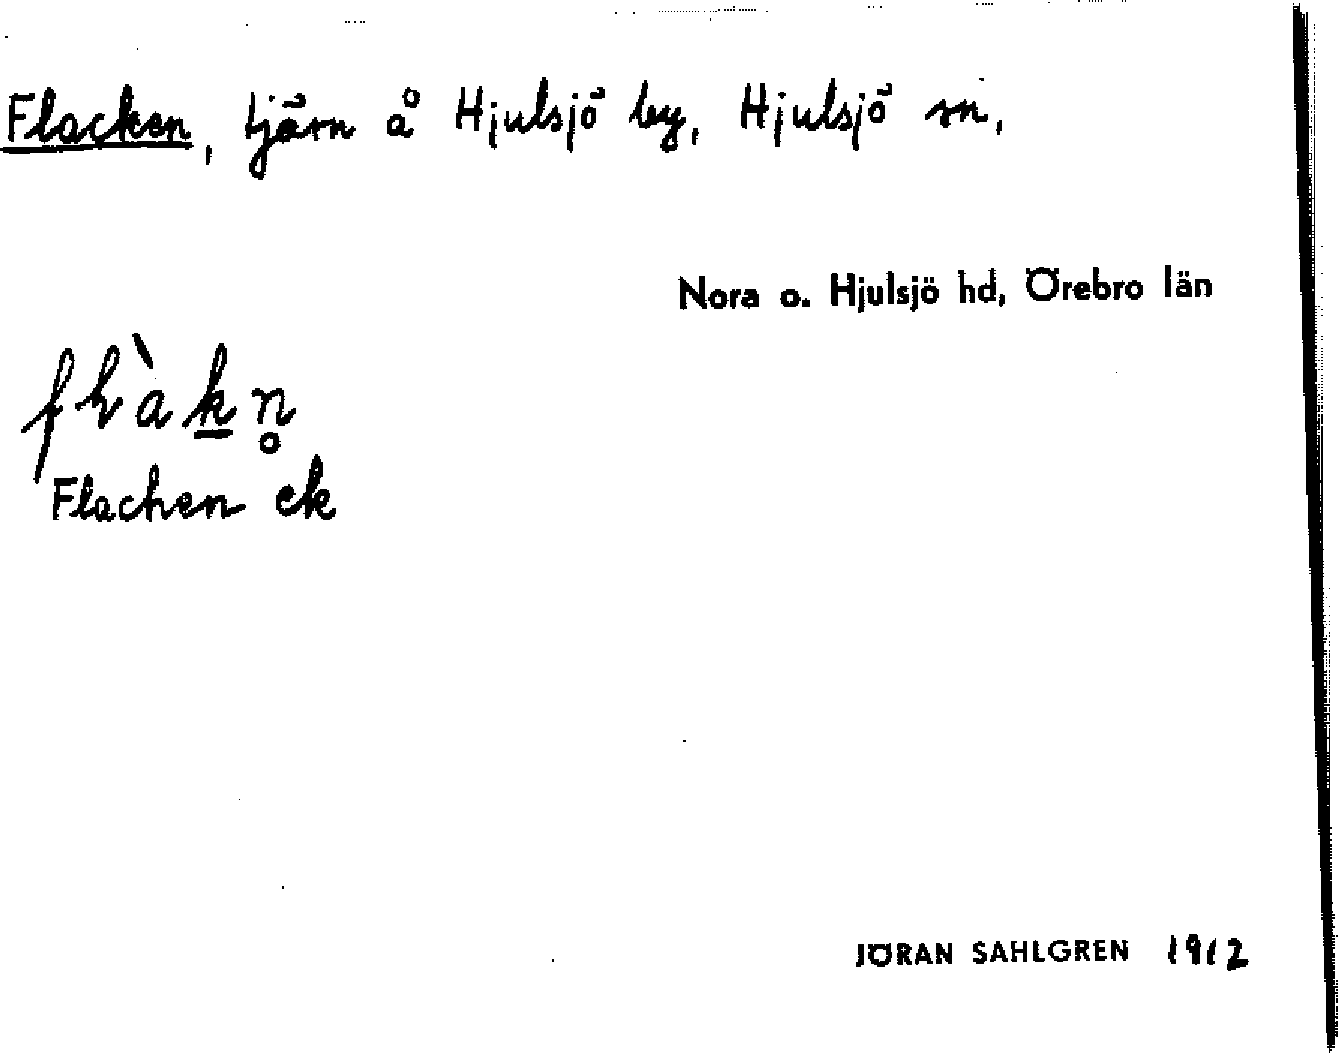 Flacken, tjärn å Hjulsjö by, Hjulsjö sn,
Nora o. Hjulsjö hd, Örebro län
Flacken ek
JÖRAN SAHLGREN 1912